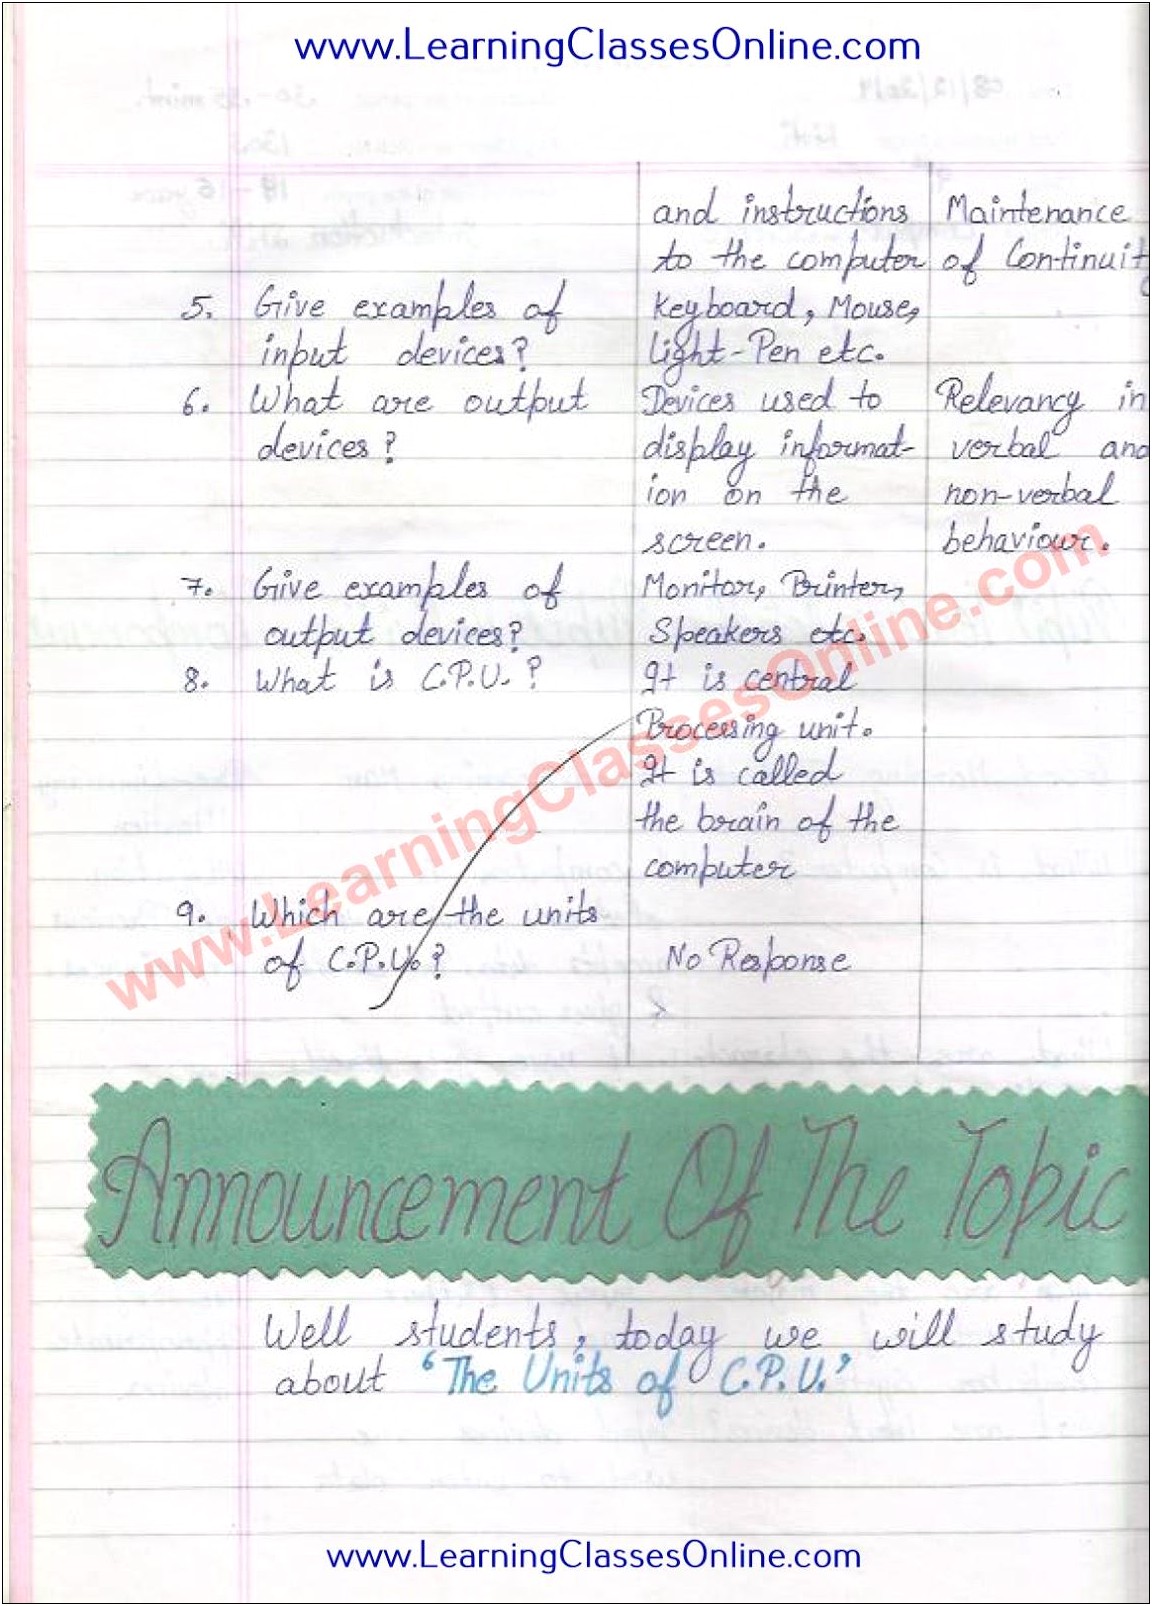 www.LearningClassesOnline.com
and instructions Maintenance
to the computer of Continuit
5. Give examples of Keyboard, Mouse,
input devices? Light-Pen etc.
6. What are output Devices used to Relevancy in
devices? display informat- verbal and
ion on the non-verbal
screen. behaviour.
7. Give examples of Monitor, Printer,
output devices? Speakers etc.
8. What is C.P.U.? It is central
Processing unit.
It is called
the brain of the
computer
9. Which are the units
of C.P.U.? No Response
www.LearningClassesOnline.com
Announcement Of The Topic
Well students, today we will study
about 'The Units of C.P.U.'
www.LearningClassesOnline.com